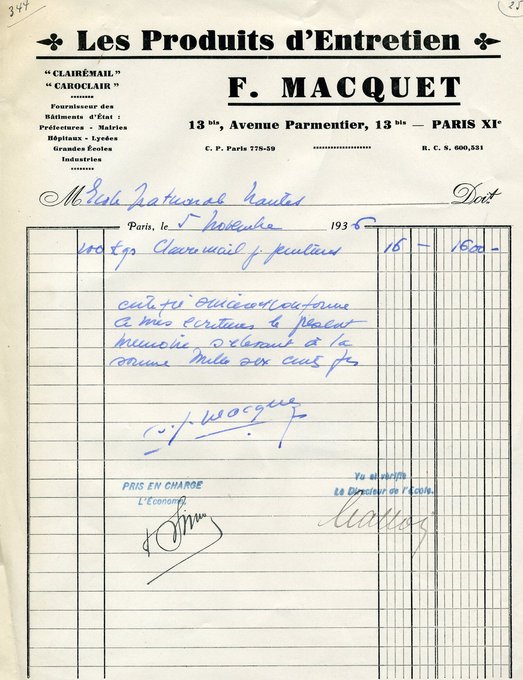 344
25
Les Produits d'Entretien
"CLAIRÉMAIL"
"CAROCLAIR"
Fournisseur des
Bâtiments d'État :
Préfectures - Mairies
Hôpitaux - Lycées
Grandes Écoles
Industries
F. MACQUET
13 bis, Avenue Parmentier, 13 bis — PARIS XIe
C. P. Paris 778-59
R. C. S. 600,531
M Ecole Nationale Nantes Doit
Paris, le 5 Novembre 1936
100 kgs Clairemail p. peintures 16 - 1600 -
certifié sincère et conforme
à mes écritures le présent
mémoire, s'élevant à la
somme Mille six cents frs
Macquet
PRIS EN CHARGE
L'Économe,
Vu et vérifié
Le Directeur de l'École.